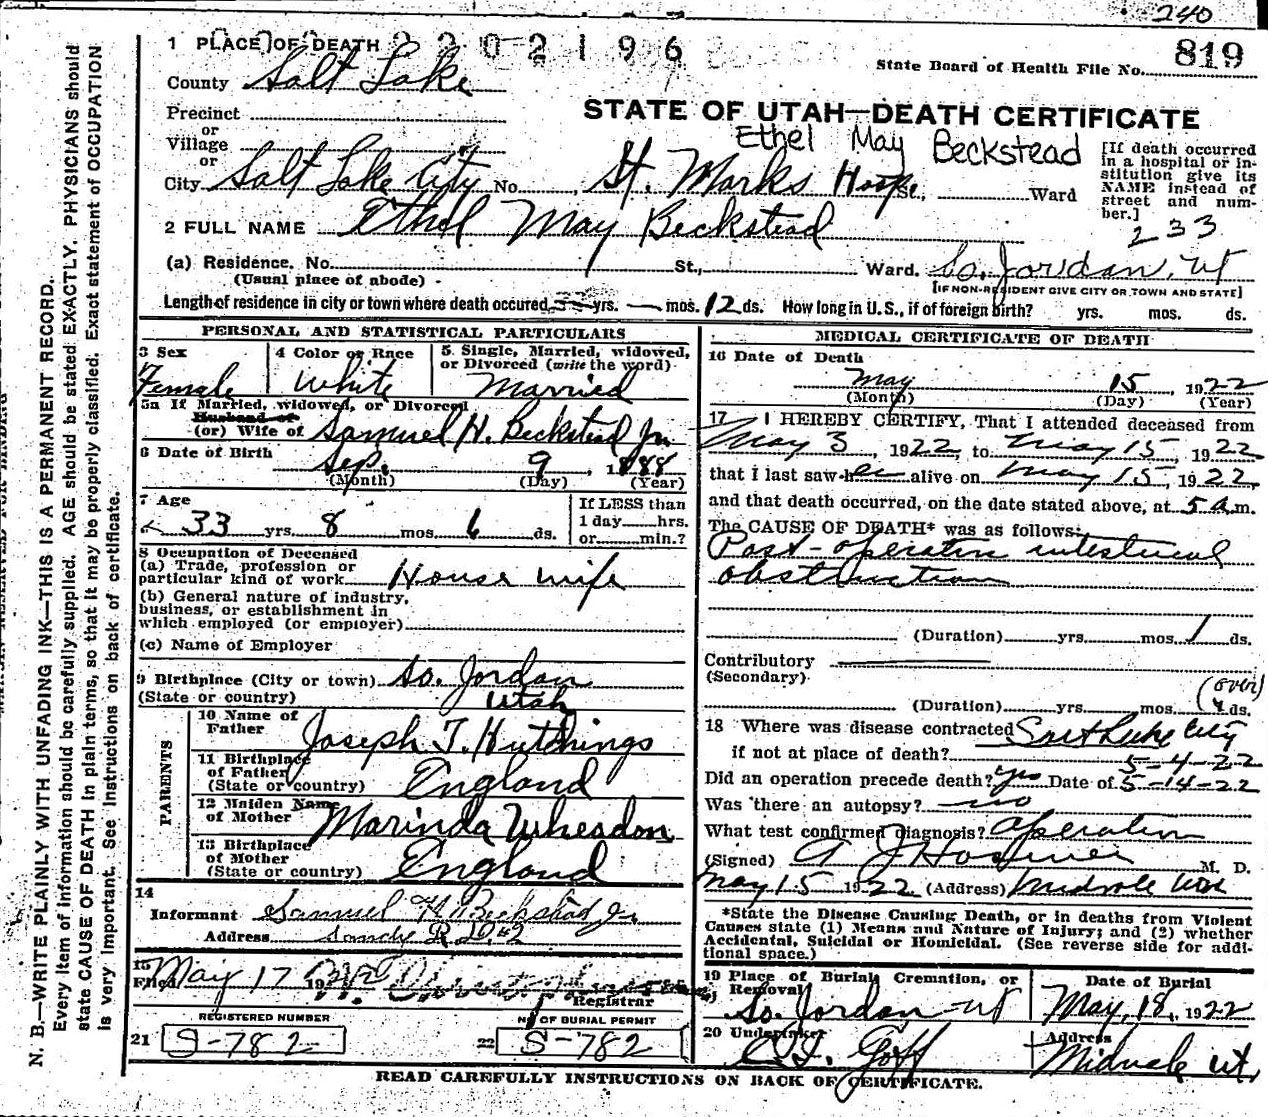 240
1 PLACE OF DEATH 2202196
State Board of Health File No. 819
County Salt Lake
STATE OF UTAH—DEATH CERTIFICATE
Precinct
or
Village
or
Ethel May Beckstead
City Salt Lake City No. St. Marks Hosp St., Ward
[If death occurred in a hospital or institution give its NAME instead of street and number.]
233
2 FULL NAME Ethel May Beckstead
(a) Residence. No. St., Ward. So. Jordan, Ut
(Usual place of abode)
[IF NON-RESIDENT GIVE CITY OR TOWN AND STATE]
Length of residence in city or town where death occured yrs. — mos. 12 ds. How long in U.S., if of foreign birth? yrs. mos. ds.
PERSONAL AND STATISTICAL PARTICULARS
3 Sex Female
4 Color or Race White
5. Single, Married, widowed, or Divorced (write the word) Married
5a If Married, widowed, or Divorced
Husband of
(or) Wife of Samuel H. Beckstead Jr.
6 Date of Birth Sep. 9, 1888
(Month) (Day) (Year)
7 Age
33 yrs. 8 mos. 6 ds.
If LESS than 1 day hrs. or min.?
8 Occupation of Deceased
(a) Trade, profession or particular kind of work House wife
(b) General nature of industry, business, or establishment in which employed (or employer)
(c) Name of Employer
9 Birthplace (City or town) So. Jordan
(State or country) Utah
PARENTS
10 Name of Father Joseph T. Hutchings
11 Birthplace of Father (State or country) England
12 Maiden Name of Mother Marinda Wheadon
13 Birthplace of Mother (State or country) England
14
Informant Samuel H. Beckstead Jr
Address Sandy R.D. #2
15
Filed May 17 19
Registrar
REGISTERED NUMBER
21 S-782
No OF BURIAL PERMIT
22 S-782
MEDICAL CERTIFICATE OF DEATH
16 Date of Death
May 15, 1922
(Month) (Day) (Year)
17 I HEREBY CERTIFY, That I attended deceased from
May 3 1922, to May 15, 1922
that I last saw her alive on May 15, 1922,
and that death occurred, on the date stated above, at 5 a.m.
The CAUSE OF DEATH* was as follows:
Post-operative intestinal
obstruction
(Duration) yrs. mos. 1 ds.
Contributory
(Secondary)
(over)
(Duration) yrs. mos. ds.
18 Where was disease contracted Salt Lake City
if not at place of death? 5-4-22
Did an operation precede death? yes Date of 5-14-22
Was there an autopsy? no
What test confirmed diagnosis? Operation
(Signed) A J Hosmer M. D.
May 15 1922 (Address) Midvale Utah
*State the Disease Causing Death, or in deaths from Violent Causes state (1) Means and Nature of Injury; and (2) whether Accidental, Suicidal or Homicidal. (See reverse side for additional space.)
19 Place of Burial, Cremation, or Removal
So. Jordan Ut
Date of Burial
May, 18, 1922
20 Undertaker
Address
Midvale Ut,
READ CAREFULLY INSTRUCTIONS ON BACK OF CERTIFICATE.
N. B.—WRITE PLAINLY WITH UNFADING INK—THIS IS A PERMANENT RECORD.
Every item of information should be carefully supplied. AGE should be stated EXACTLY. PHYSICIANS should
state CAUSE OF DEATH in plain terms, so that it may be properly classified. Exact statement of OCCUPATION
is very important. See Instructions on back of certificate.